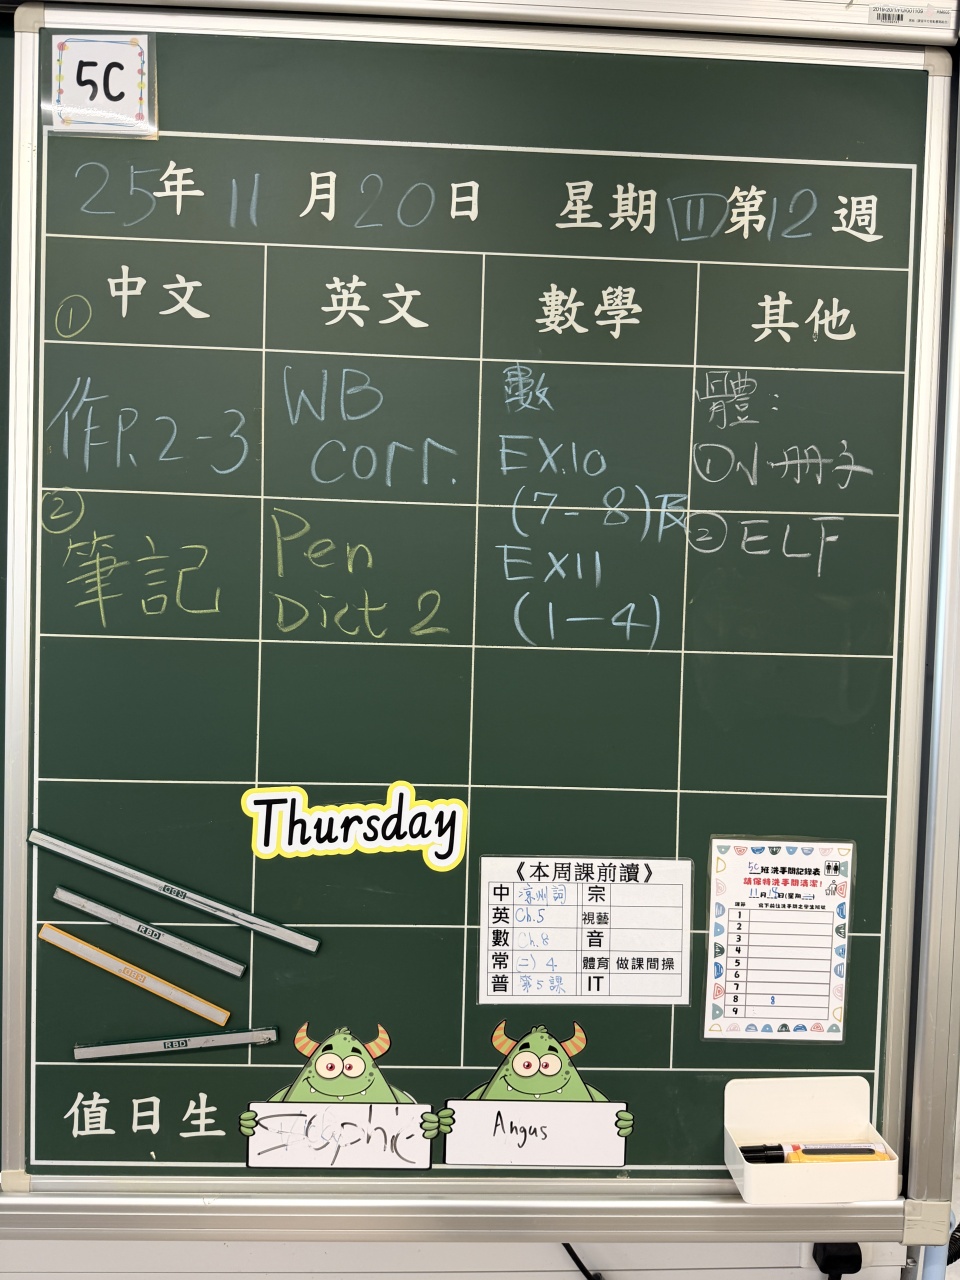 5C
25年 11月 20日 星期四 第12週
中文 英文 數學 其他
①
作P.2-3
②
筆記
WB
corr.
Pen
Dict 2
數
EX.10
(7-8)及
EX11
(1-4)
體:
①小冊子
②ELF
Thursday
RBD
RBD
RBD
RBD
《本周課前讀》
中 涼州詞 宗
英 Ch.5 視藝
數 Ch.8 音
常 (二) 4 體育 做課間操
普 第5課 IT
5C班洗手間記錄表
請保持洗手間清潔!
1
2
3
4
5
6
7
8 8
9
值日生
Angus